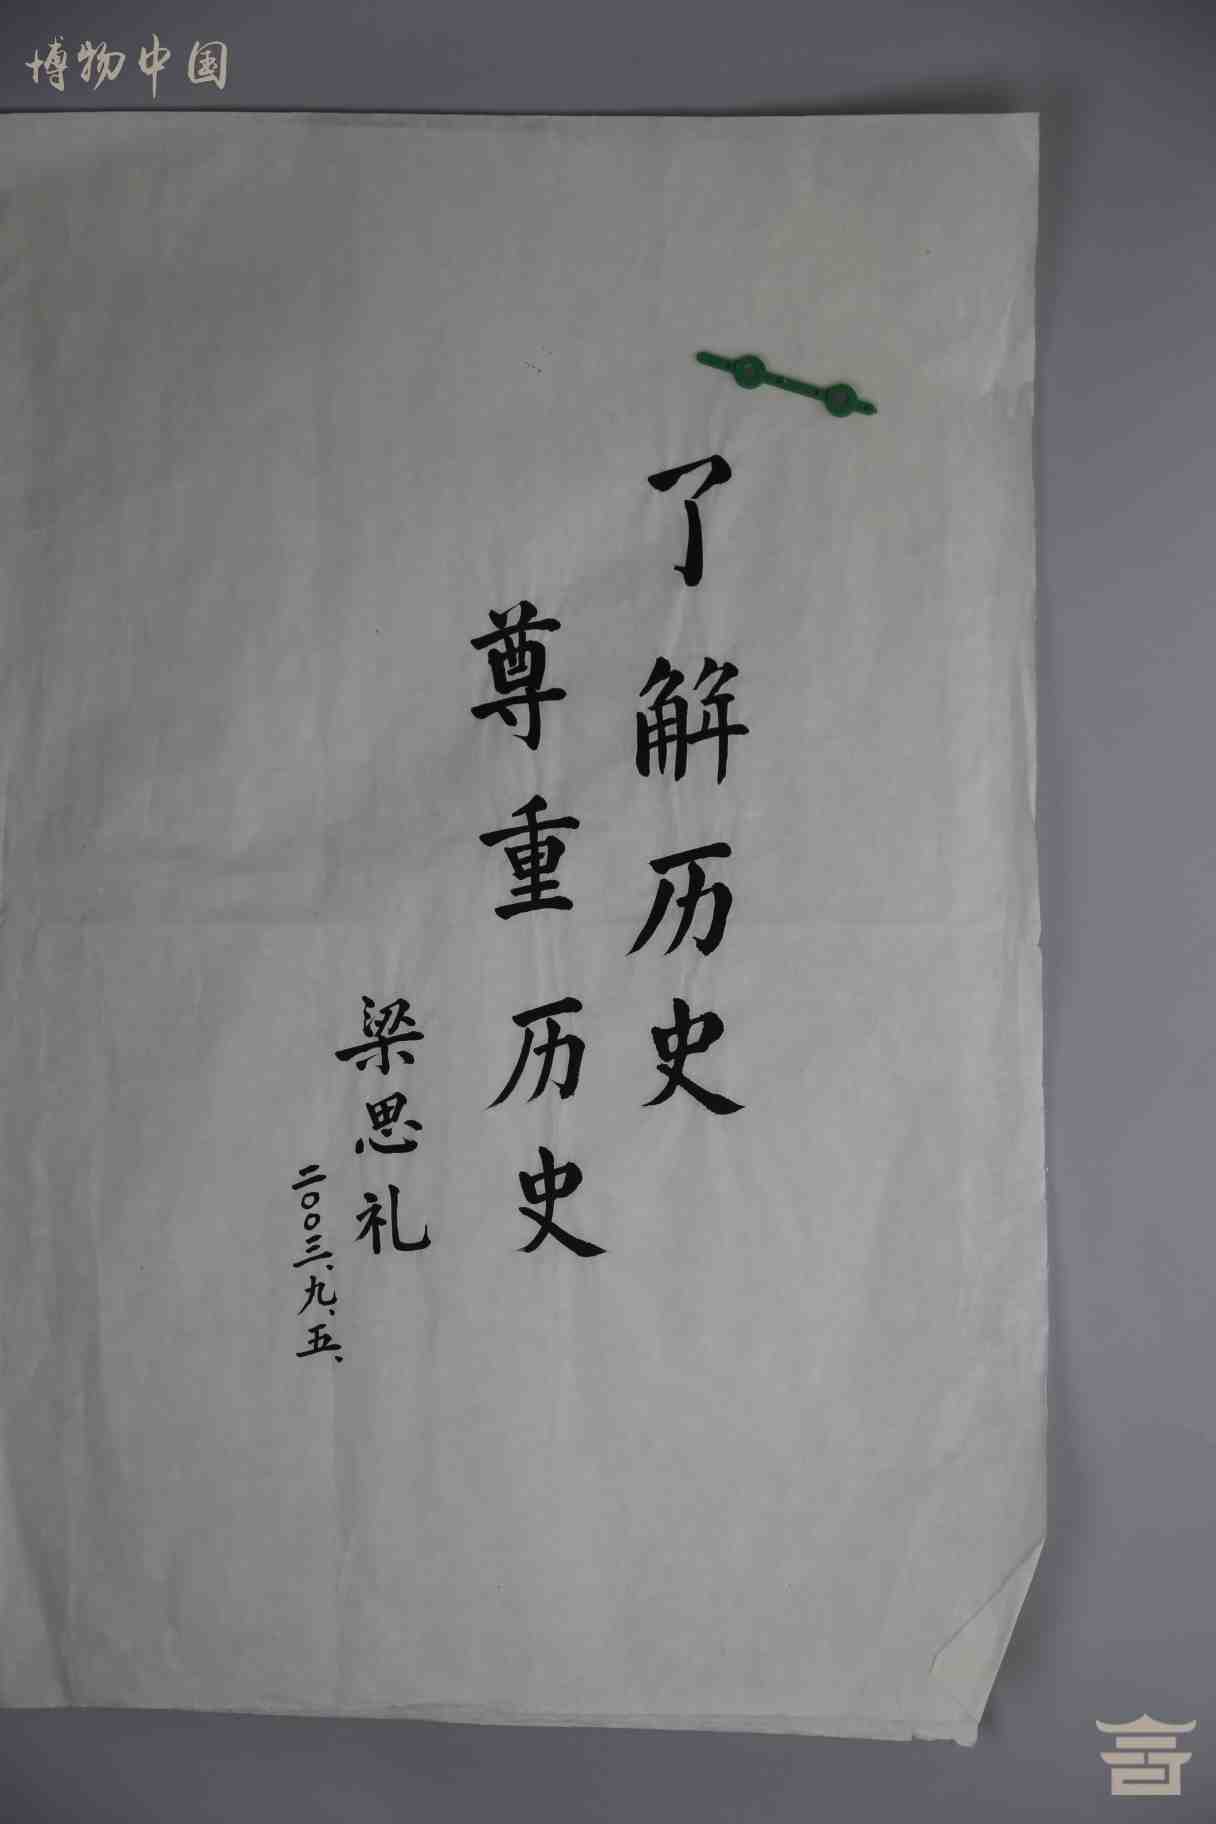 博物中国
了解历史
尊重历史
梁思礼
二〇〇三、九、五、